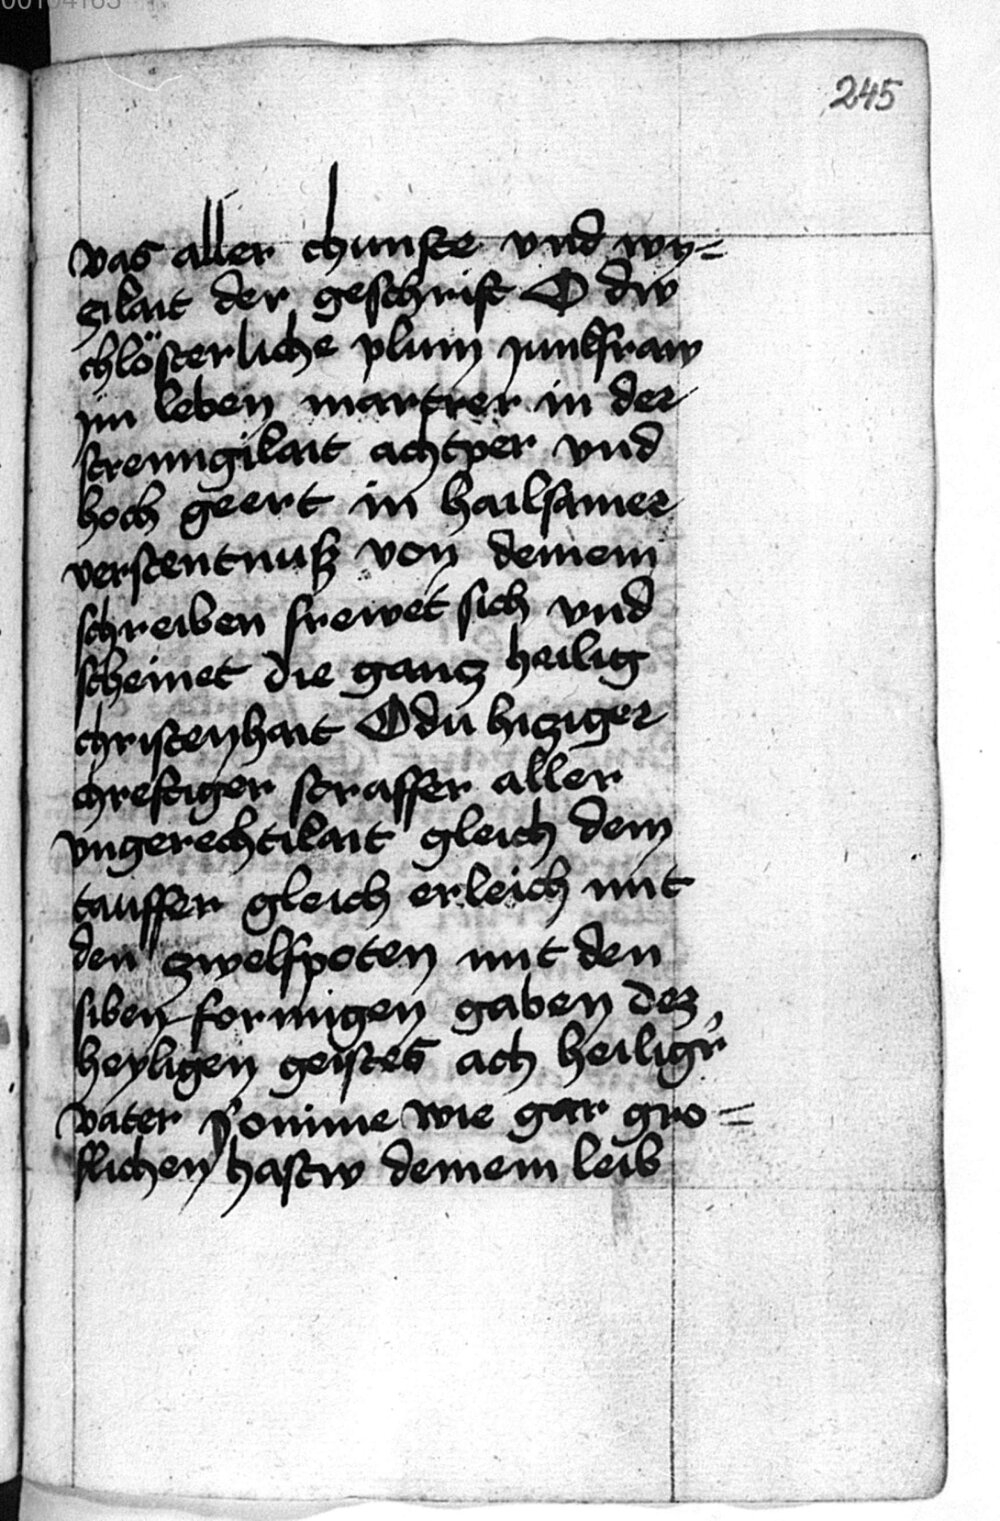 00104163
245
vas aller chunste vnd wy=
zikait der geschrift O dw
chlösterliche plum junkfraw
im leben martrer in der
strenngikait achtper vnd
hoch geert in hailsamer
verstentnuß von deinem
schreiben frewet sich vnd
scheinet die gancz heilig
christenhait O du hicziger
chreftiger straffer aller
vngerechtikait gleich dem
tauffer gleich erleich mit
den zwelfpoten mit den
siben formigen gaben dez
heyligen geistes ach heiligr
vater Jonime wie gar gro=
slichen hastw deinem leib